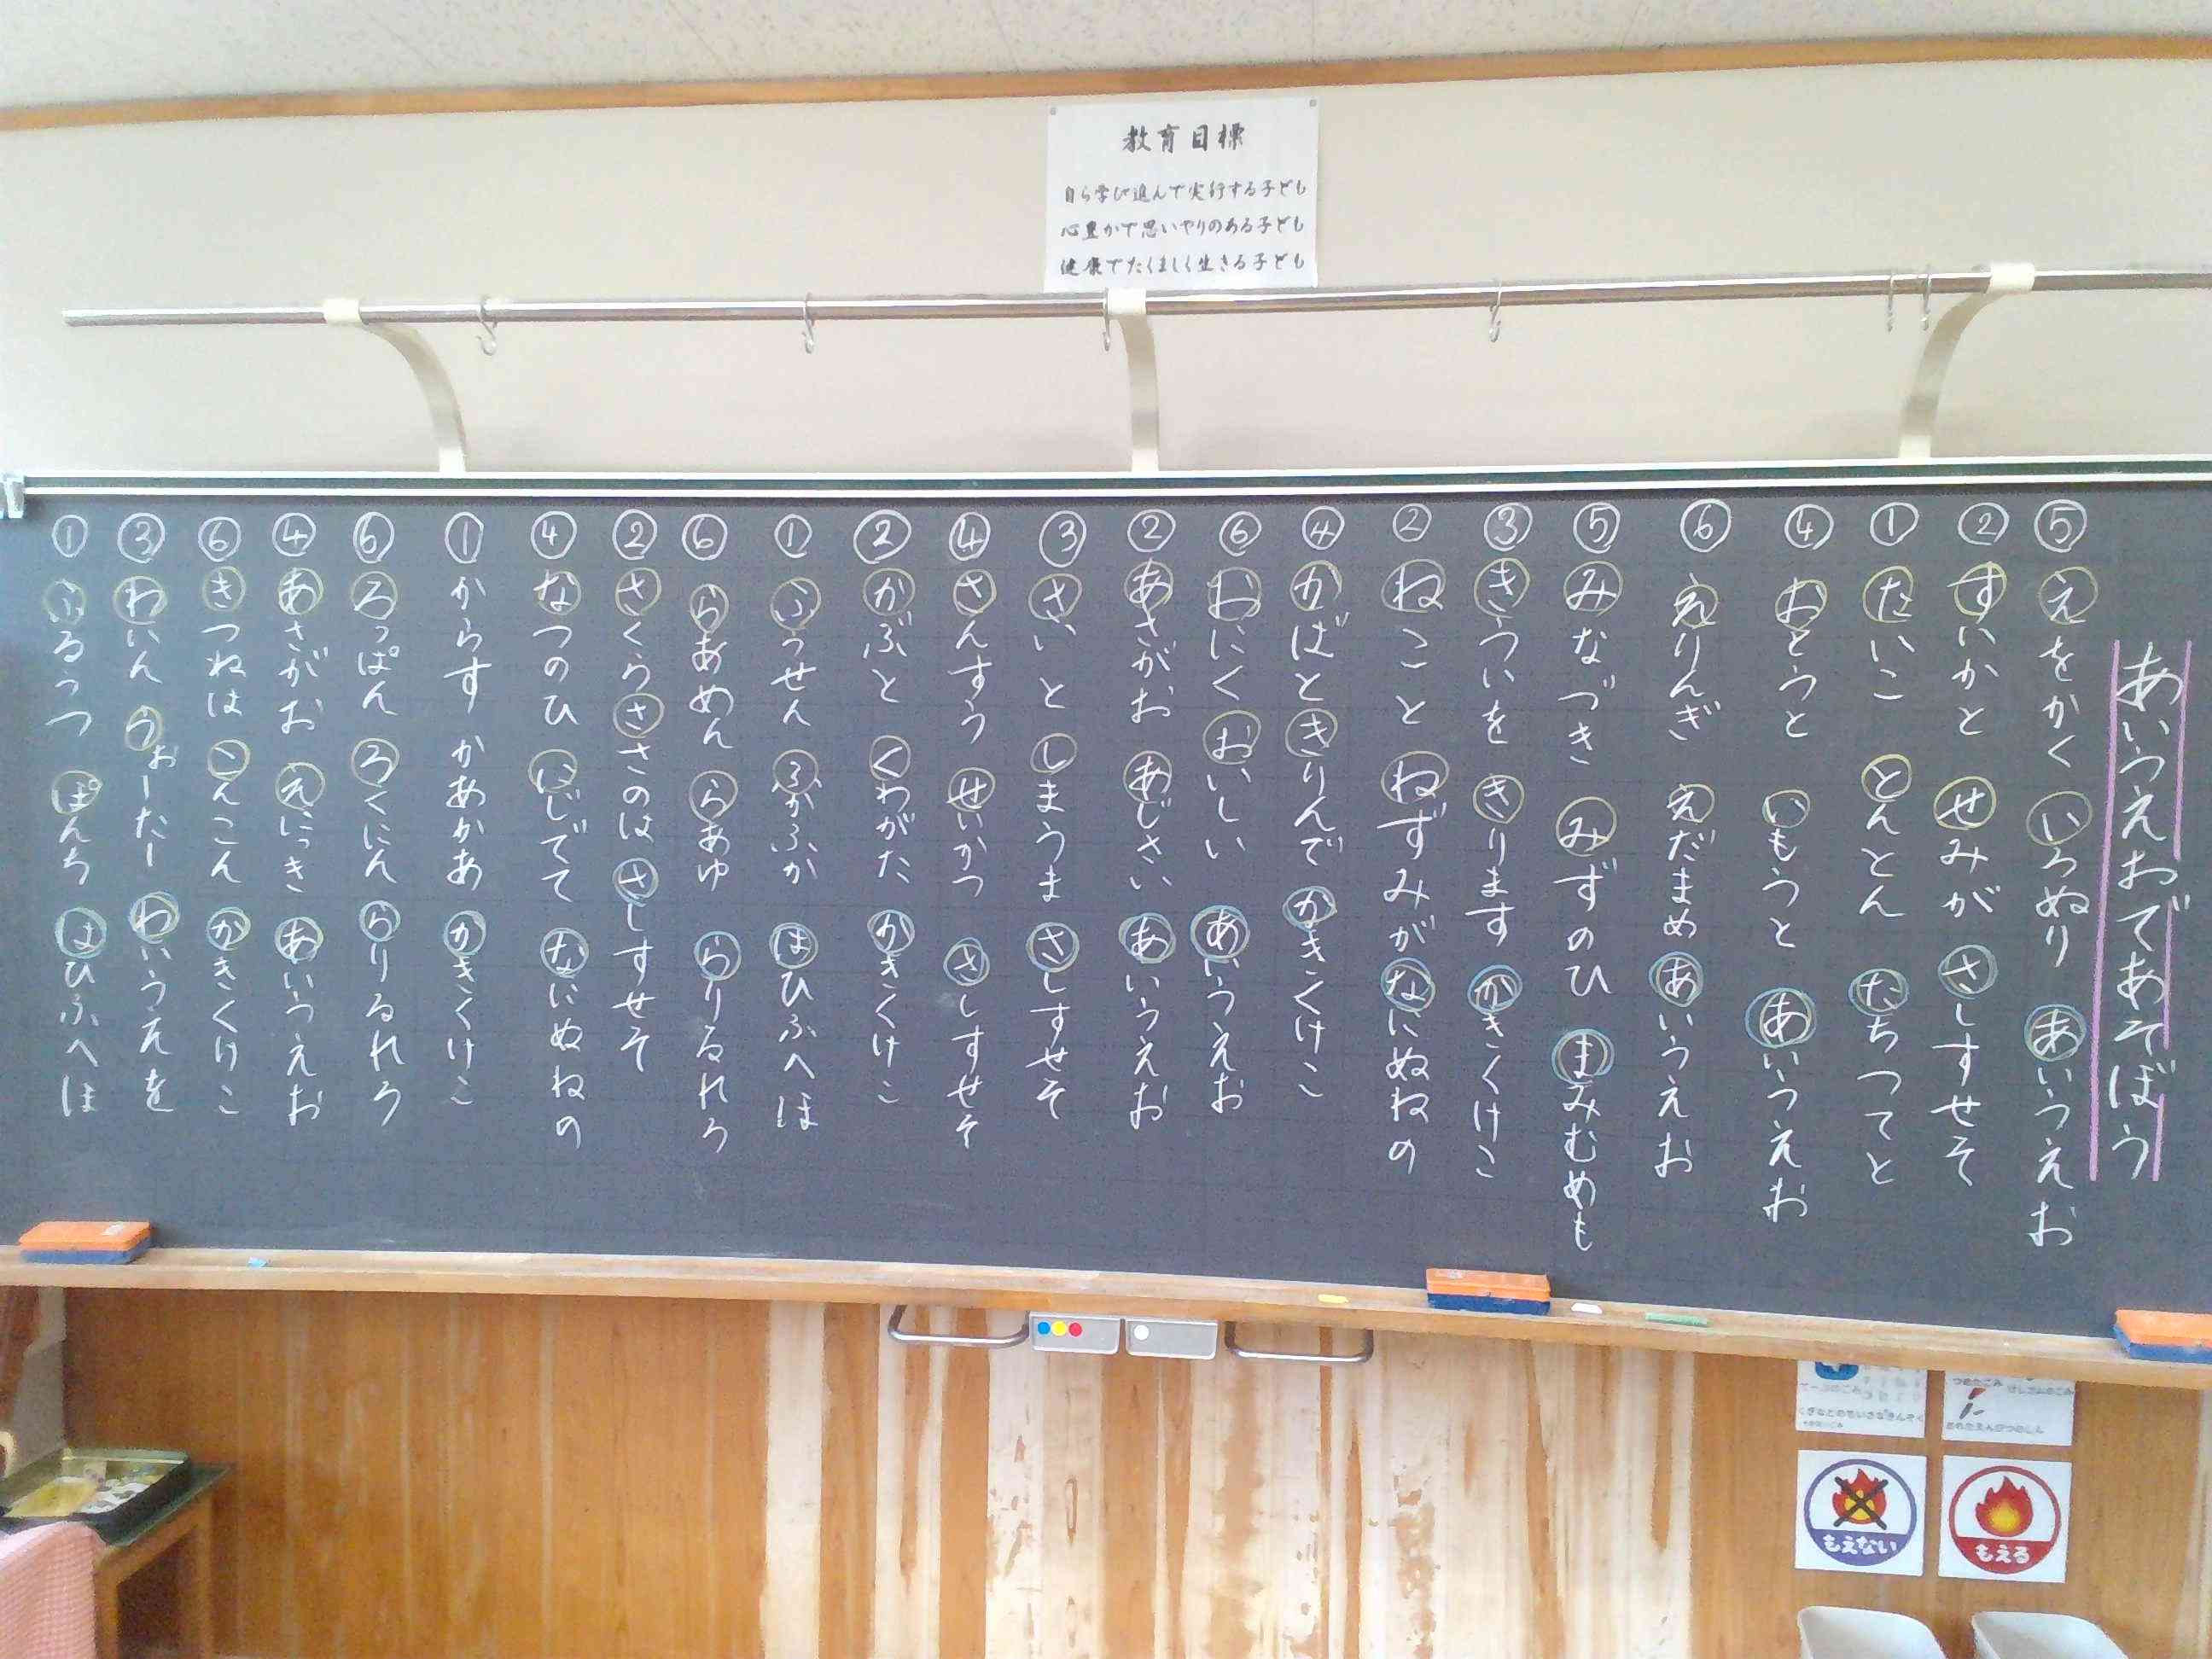 教育目標
自ら学び進んで実行する子ども
心豊かで思いやりのある子ども
健康でたくましく生きる子ども
あいうえおであそぼう
⑤ えをかく いろぬり あいうえお
② すいかと せみが さしすせそ
① たいこ とんとん たちつてと
④ おとうと いもうと あいうえお
⑥ えりんぎ えだまめ あいうえお
⑤ みなづき みずのひ まみむめも
③ きゅういを きります かきくけこ
② ねこと ねずみが なにぬねの
④ かばときりんで かきくけこ
⑥ おにく おいしい あいうえお
② あさがお あじさい あいうえお
③ さいと しまうま さしすせそ
④ さんすう せいかつ さしすせそ
② かぶと くわがた かきくけこ
① ふうせん ふかふか はひふへほ
⑥ らあめん らあゆ らりるれろ
② さくらささのは さしすせそ
④ なつのひ にじでて なにぬねの
① からす かあかあ かきくけこ
⑥ ろっぽん ろくにん らりるれろ
④ あさがお えにっき あいうえお
⑥ きつねは こんこん かきくけこ
③ わいん うぉーたー わいうえを
① ふるうつ ぽんち はひふへほ
もえない
もえる